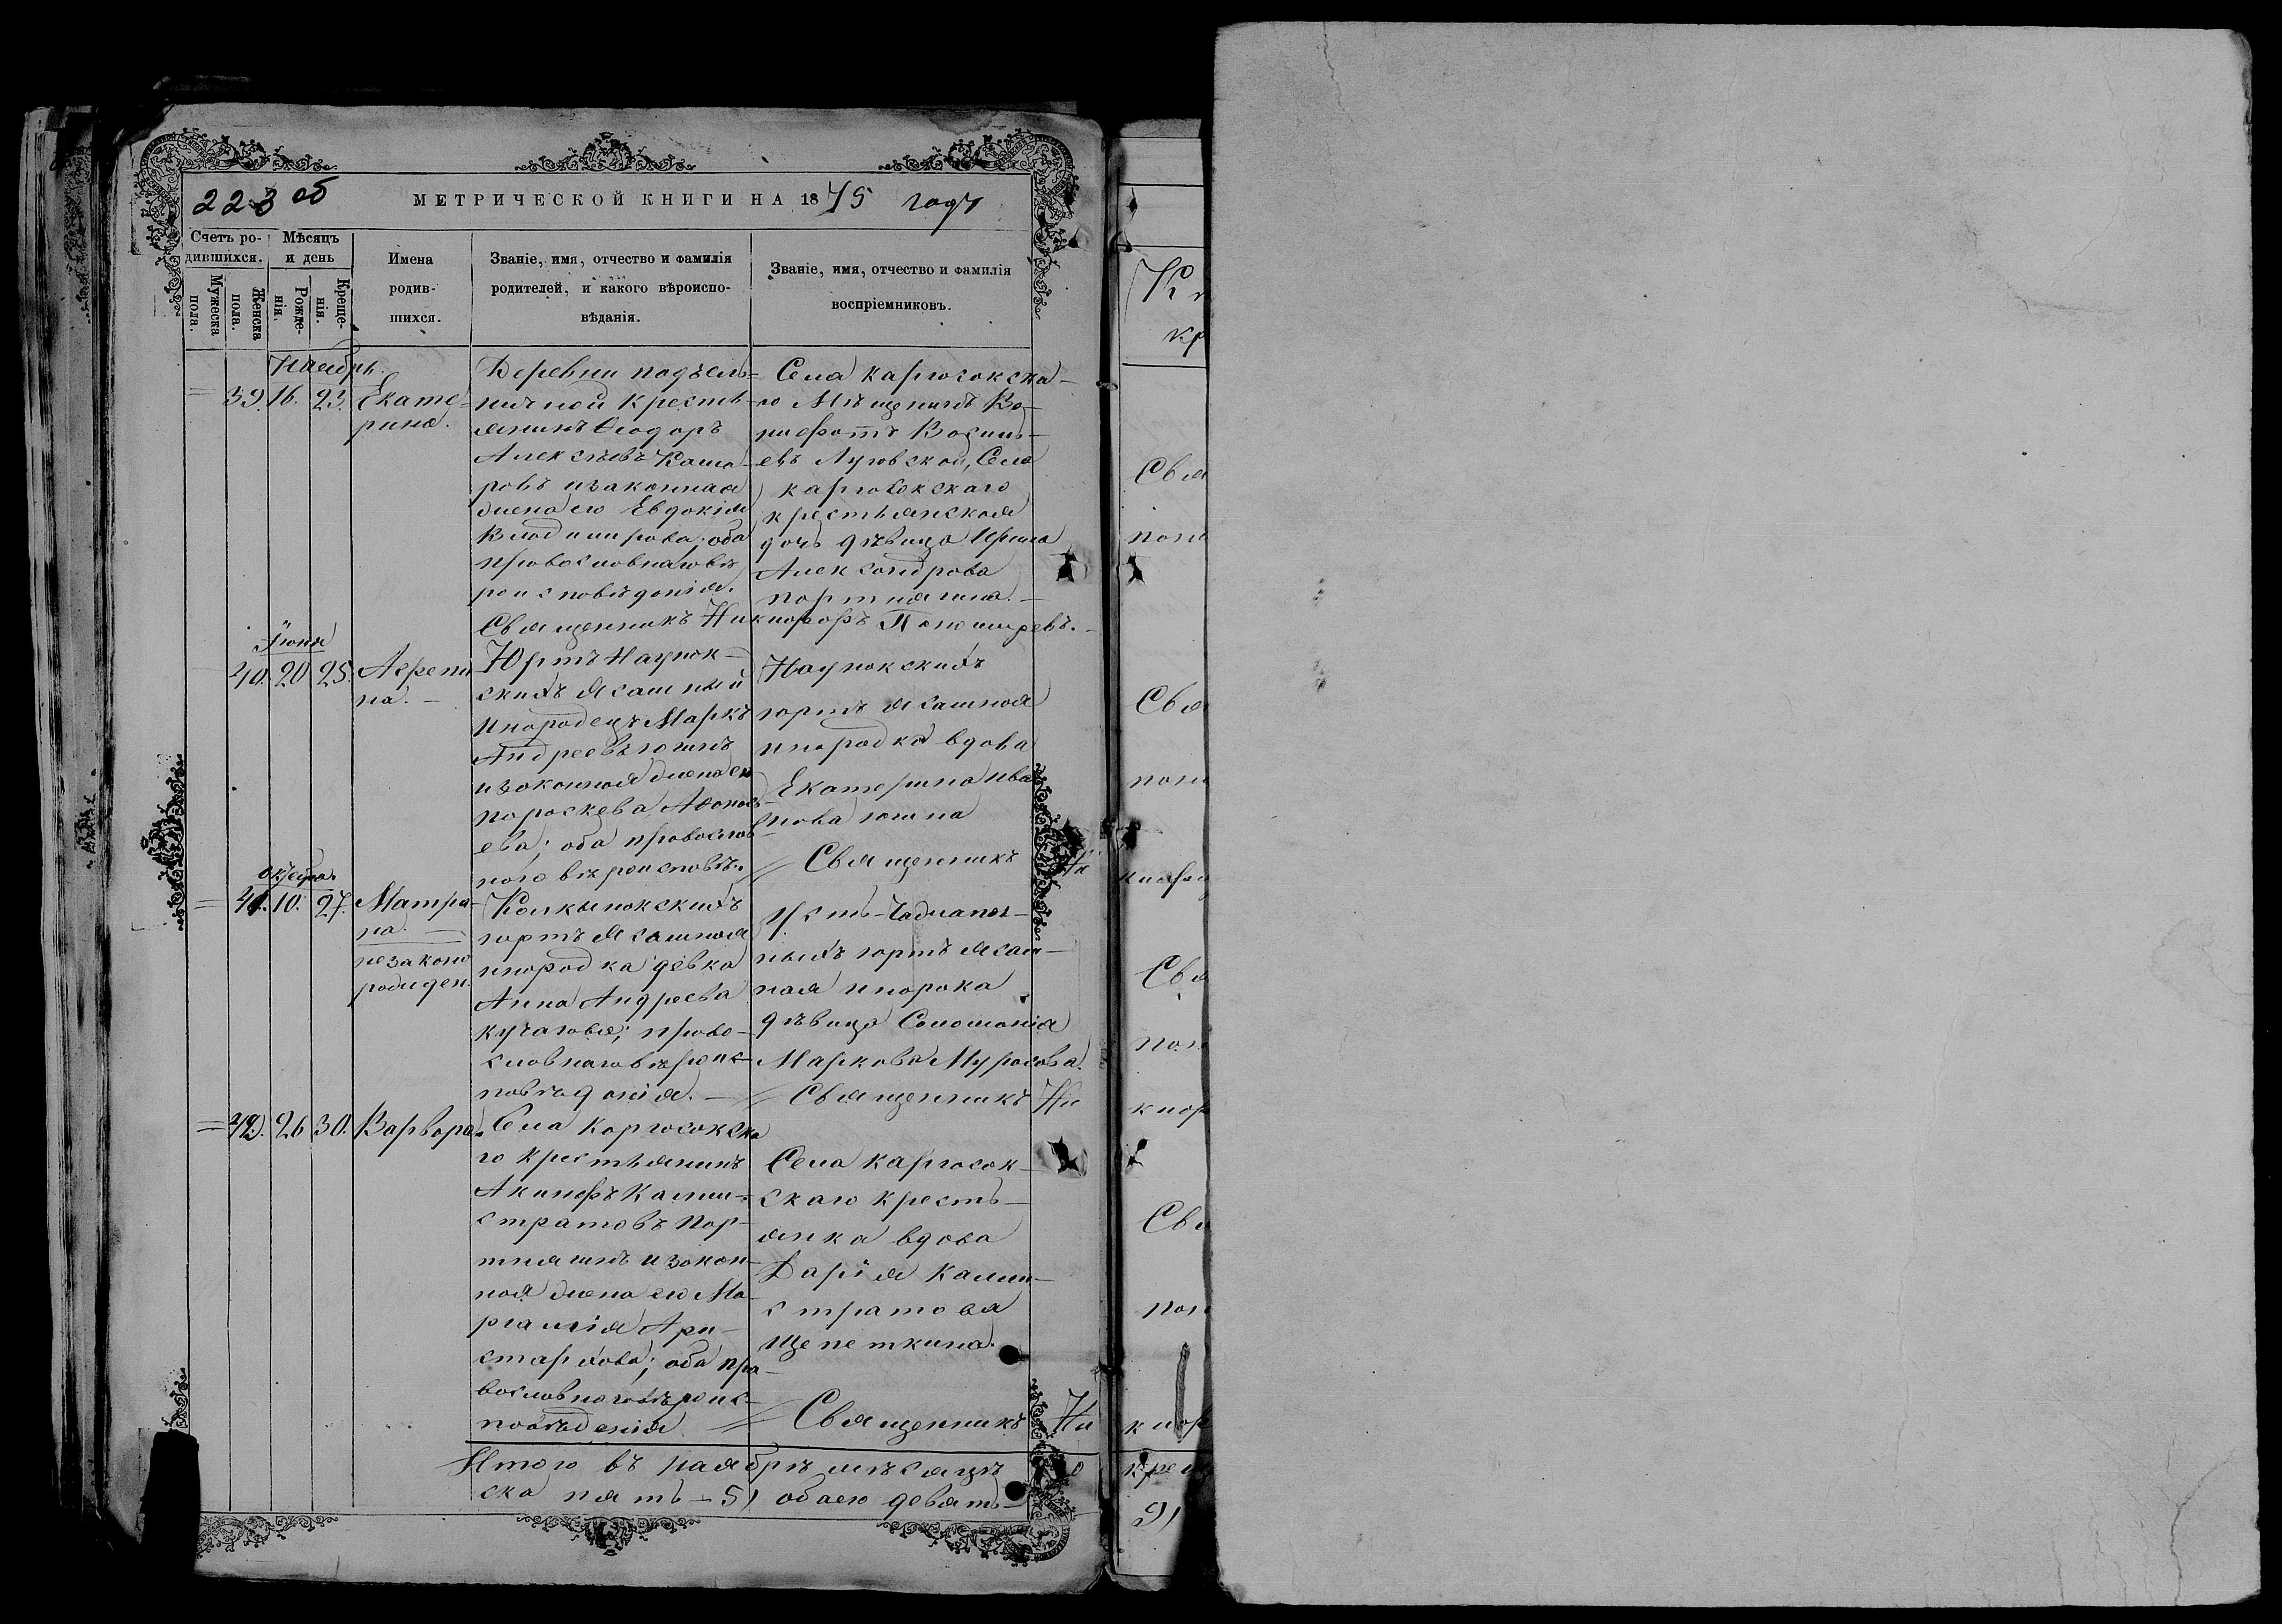 223 об
МЕТРИЧЕСКОЙ КНИГИ НА 1875 года
Счетъ ро-
дившихся.
Мужеска
пола.
Женска
пола.
Мѣсяцъ
и день
Рожде-
нія.
Креще-
нія.
Имена
родив-
шихся.
Званіе, имя, отчество и фамилія
родителей, и какого вѣроиспо-
вѣданія.
Званіе, имя, отчество и фамилія
воспріемниковъ.
Ноябрь.
39. 16. 23.
Екате-
рина.
Деревни подъель-
ничной Кресть-
янинъ Ѳеодоръ
Алексѣевъ
ровъ и законная
жена его Евдокія
Владимирова; оба
православнаго вѣ-
роисповѣданія.
Села Каргасокска-
го Мѣщанинъ Во-
нифатъ Василь-
евъ Луговской, Села
Каргасокскаго
крестьянская
дочь дѣвица Ирина
Александрова
портнягина.
Священникъ Никифоръ
Іюня
40. 20 25.
Агрепи
на.
Юртъ Наунак-
скихъ Ясашный
инородецъ Маркъ
Андреевъ
и законная жена ег
параскева Аѳонась-
ева; оба православ-
наго вѣроисповѣ.
Наунакскихъ
юртъ ясашная
инородка вдова
Екатерина Ива
нова
Священникъ Ни
кифор
октября
41. 10. 27.
Матре-
на.
незакон
рожден.
Колкынакскихъ
юртъ Ясашная
инородка девка
Анна Андреева
православнаго вѣроис-
повѣданія.
Усть-
ныхъ юртъ ясаш-
ная инорока
дѣвица Соломонія
Маркова Мурасова.
Священникъ Ни
кифор
42. 26 30.
Варвара
Села Каргасокска
го крестьянинъ
Акинфъ Калли-
стратовъ Пор-
тнягинъ и закон-
ная жена его Ма-
ргамія Ари-
стархова; оба пра-
вославнаго вѣроис-
повѣданія
Села Каргасок-
скаго кресть-
янка вдова
Дарія Калли-
стратова
Щепеткина.
Священникъ Ни
кифор
Итого въ ноябрѣ мѣсяцѣ
ска пять – 5) обаего девять
9)